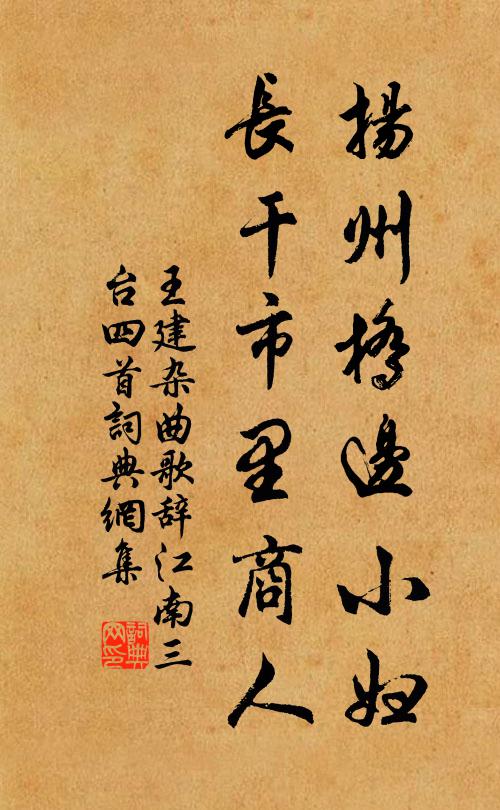 揚州橋邊小妇
長干市里商人
王建杂曲歌辞江南三
台四首詞典網集
詞典
网印